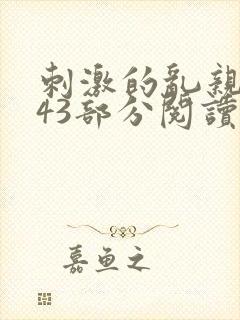 刺激的亂親
43部分閱讀
嘉鱼之